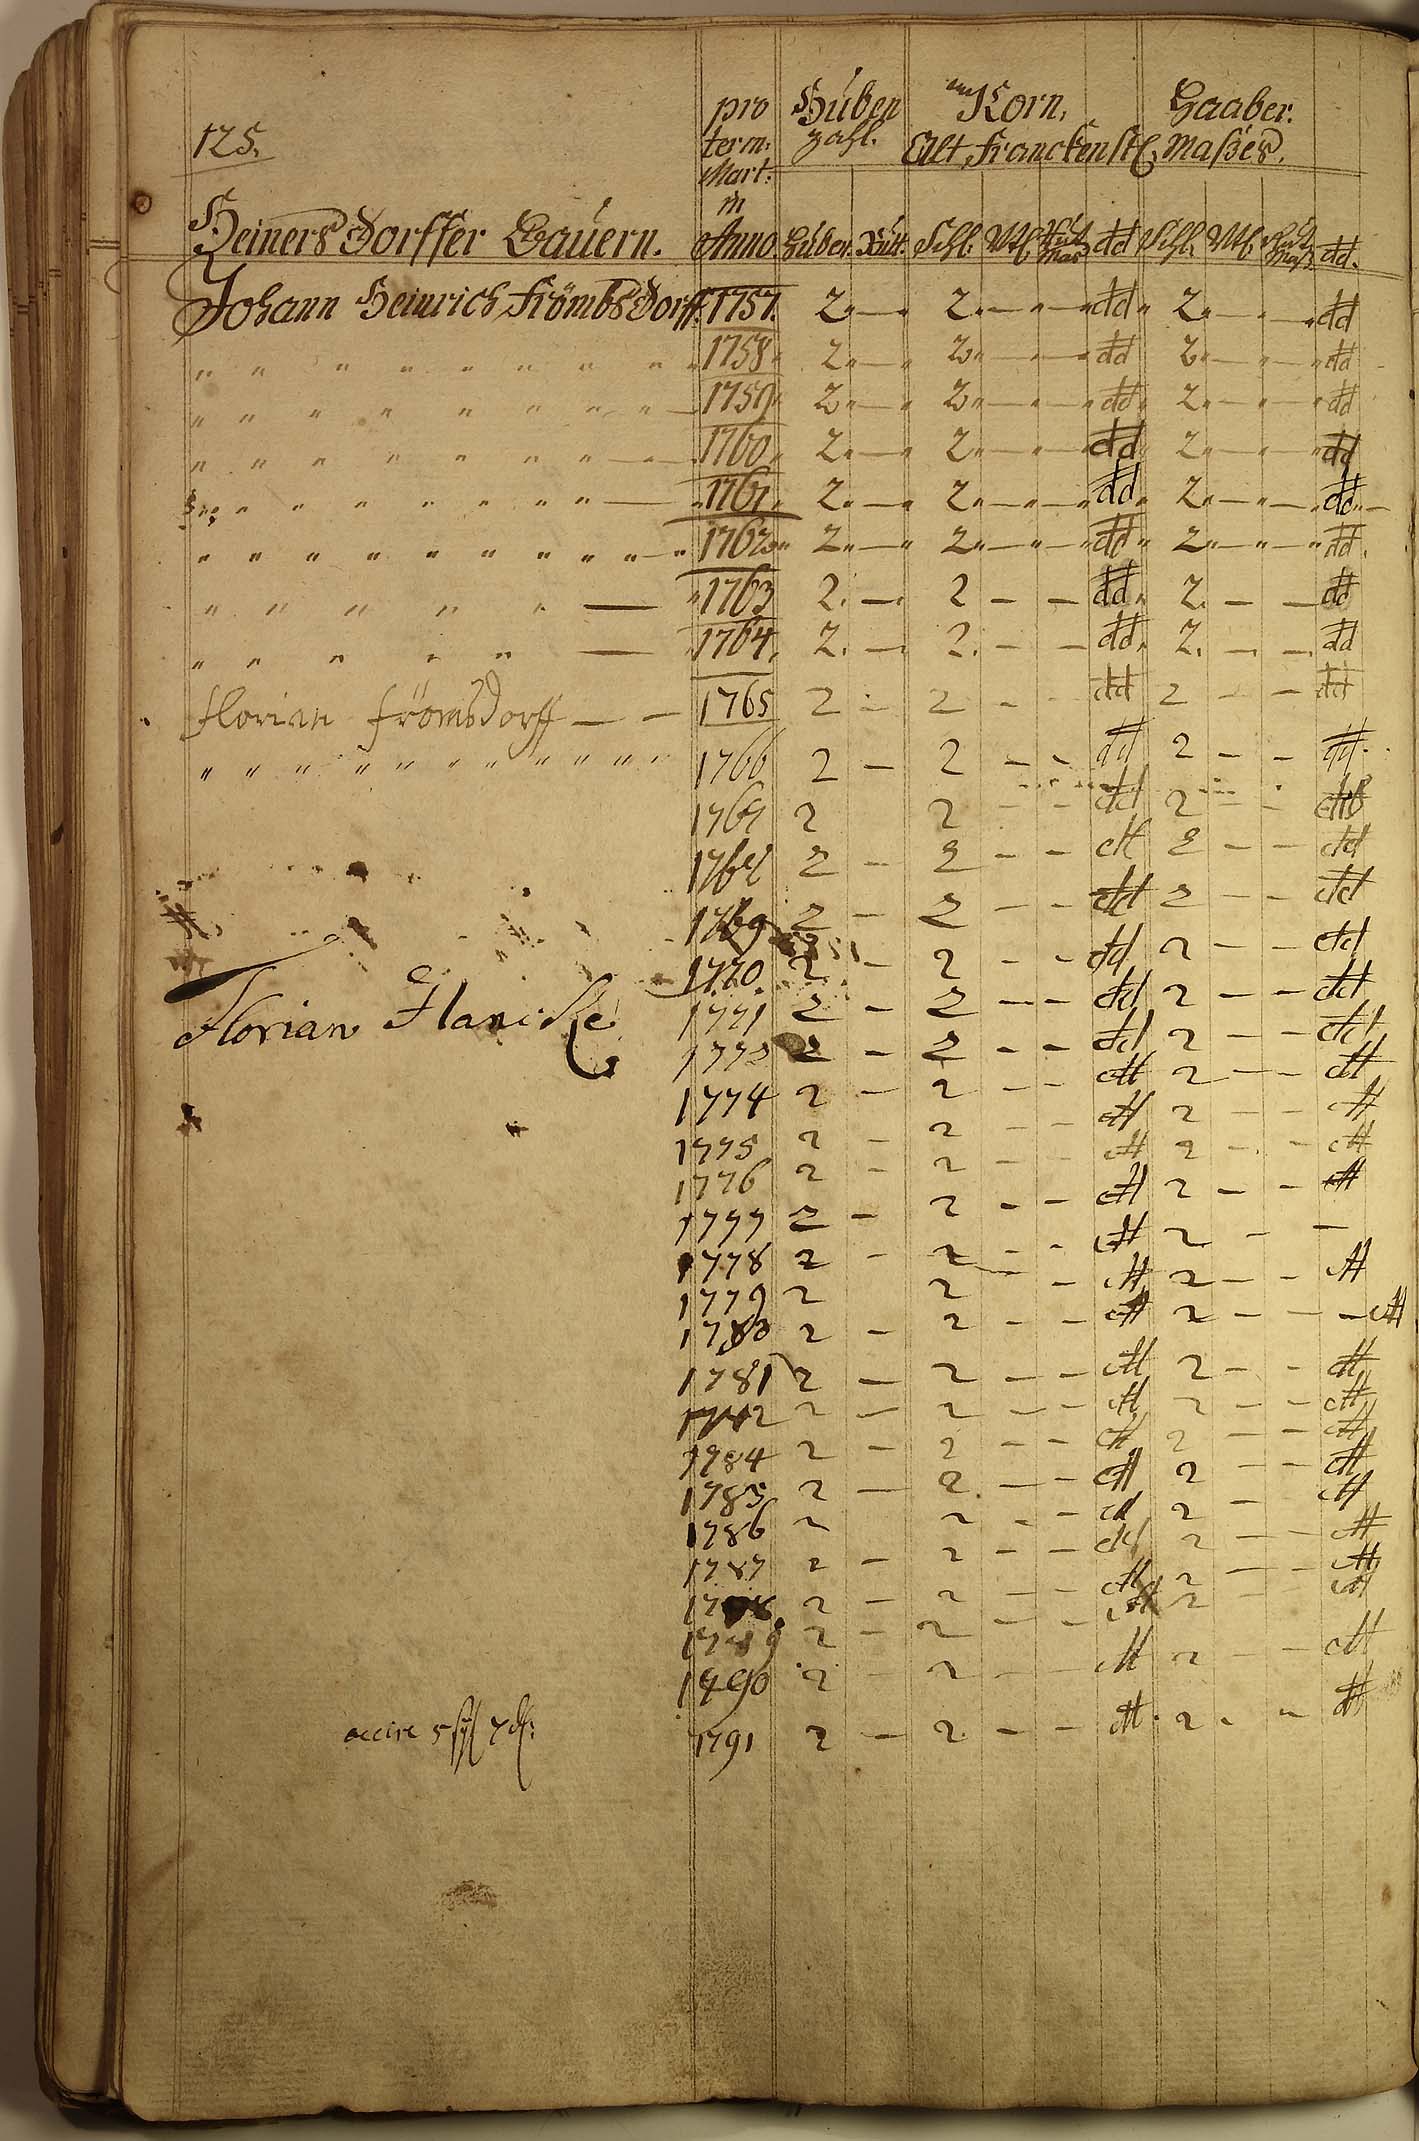 125.
pro Huben Korn. Haaber.
term: zahl. Alt Franckenst. Maßes.
Mart:
in
Heinersdorffer Bauern. Anno. Huben. Rutt. Schl. Vtl. dd Schl. Vtl. dd.
Johann Heinrich Frömbsdorff. 1757. 2 „ — „ 2 „ — „ — „ dd „ 2 „ — „ — „ dd
„ „ „ „ „ „ „ „ „ 1758 „ 2 „ — „ 2 „ — „ — „ dd 2 „ — „ — „ dd
„ „ „ „ „ „ „ „ — „ 1759 „ 2 „ — „ 2 „ — „ — „ dd „ 2 „ — „ — „ dd
„ „ „ „ „ „ „ „ — „ 1760 „ 2 „ — „ 2 „ — „ — „ dd „ 2 „ — „ — „ dd
„ „ „ „ „ „ „ „ — „ 1761 „ 2 „ — „ 2 „ — „ — „ dd „ 2 „ — „ — „ dd „ —
„ „ „ „ „ „ „ „ „ „ — „ 1762 „ 2 „ — „ 2 „ — „ — „ dd „ 2 „ — „ — „ dd.
„ „ „ „ „ — „ 1763 2. — . 2 — — dd „ 2. — — dd
„ „ „ „ „ — „ 1764. 2. — . 2. — — dd. 2. — — dd
Florian Frömsdorff — — 1765 2 — 2 — — dd 2 — — dd
„ „ „ „ „ „ „ „ „ „ „ 1766 2 — 2 — — dd 2 — — dd
1767 2 2 — — dd 2 — — dd
1768 2 — 2 — — dd 2 — — dd
1769 2 — 2 — — dd 2 — — dd
1770. 2 — 2 — — dd 2 — — dd
Florian Hancke 1771 2 — 2 — — dd 2 — — dd
2 — 2 — — dd 2 — — dd
1774 2 — 2 — — dd 2 — — dd
1775 2 — 2 — — dd 2 — — dd
1776 2 — 2 — — dd 2 — — dd
1777 2 — 2 — — dd 2 — — dd
1778 2 — 2 — — dd 2 — —
1779 2 2 — dd 2 — — dd
1780 2 — 2 — — dd 2 — — — dd
1781 2 — 2 — — dd 2 — — dd
2 — 2 — — dd 2 — — dd
1784 2 — 2 — — dd 2 — — dd
1785 2 — 2. — — dd 2 — — dd
1786 2 2 — — dd 2 — dd
1787 2 — 2 — — dd 2 — — dd
2 — 2 — — dd 2 — — dd
1789 2 — 2 — — dd 2 — dd
1790 2 — 2 — — dd 2 — — dd
1791 2 — 2 — — dd. 2 — — dd